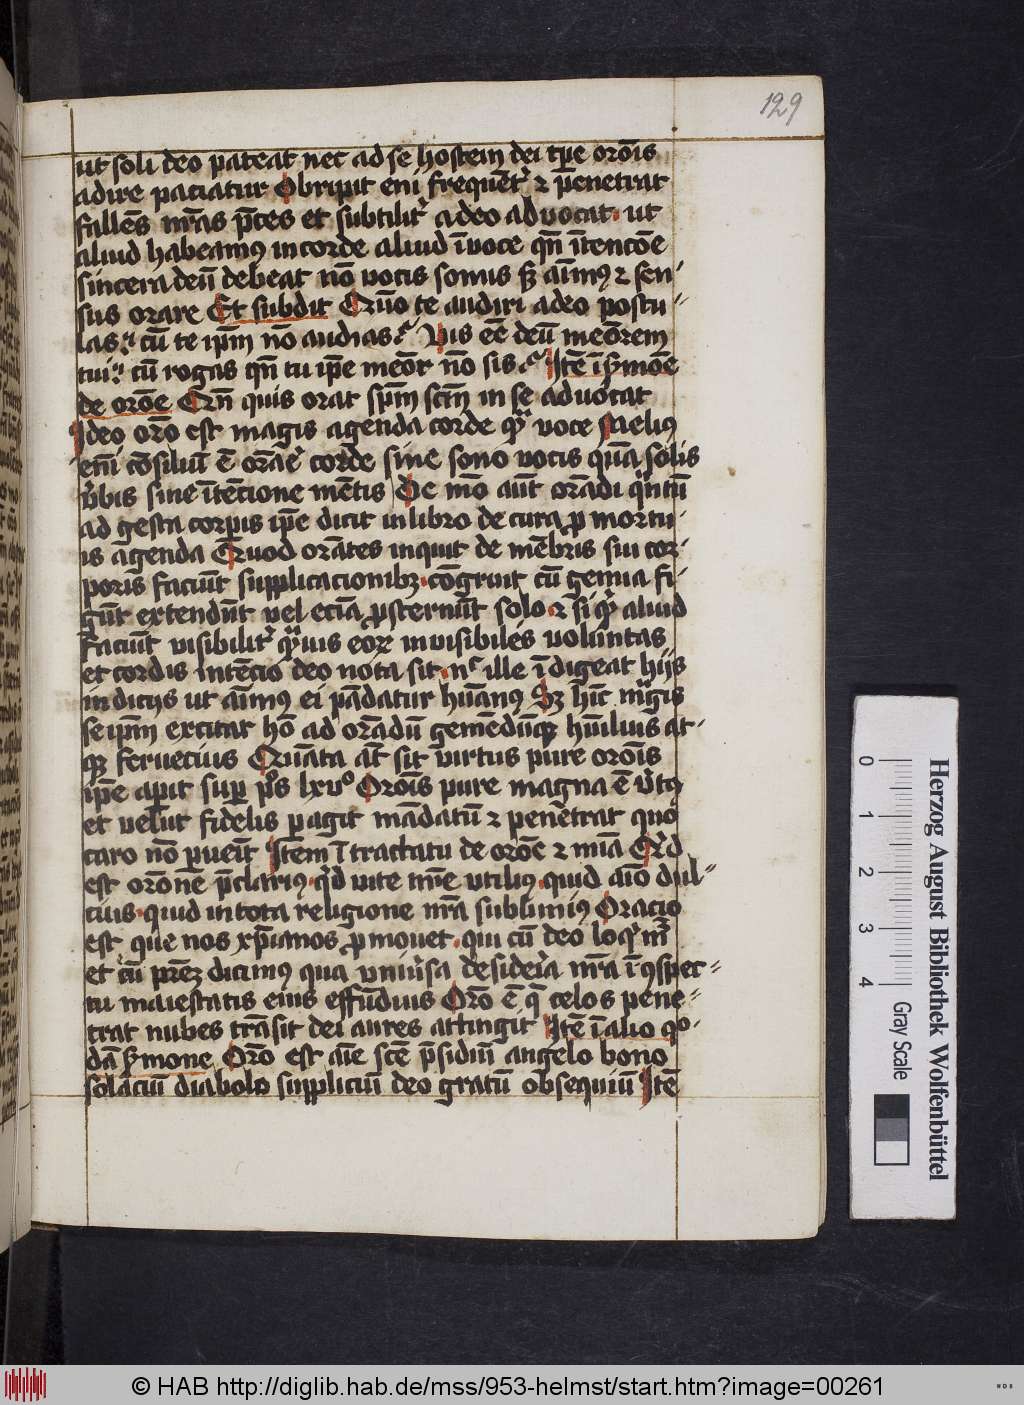 129
ut soli deo pateat nec ad se hostem dei tp̄e orōis
adire paciatur Obripit enī frequēt᷑ ⁊ penetrat
fallēs nr̄as p̄ces et subtilit᷑ a deo advocat· ut
aliud habeamꝰ in corde aliud ī voce qn̄ ītencōe
sincera deū debeat nō vocis sonus sꝫ aīmꝰ ⁊ sen-
sus orare Et subdit Quō te audiri a deo postu-
las cū te ipm̄ nō audias Vis eē deū meōrem
tui cū rogas qn̄ tu ip̄e meōr nō sis Itē ī sermōe
de orōe Qn̄ quis orat sp̄m scm̄ in se advocat
Ideo orō est magis agenda corde qᷓ voce Melius
enī cōsiliū ē orāe corde sine sono vocis quā solis
v̓bis sine ītēcione mētis De mō aūt orādi qᷓntū
ad gesta corpis ip̄e dicit in libro de cura ꝓ mortu-
is agenda Quod orātes inquit de mēbris sui cor-
poris faciūt supplicacionibꝫ cōgruit cū genua fi-
gūt extendūt vel eciā ꝓsternūt solo ⁊ si qͥ aliud
faciūt visibilit᷑ qᷓvis eoꝝ invisibiles voluntas
et cordis intēcio deo nota sit nͨ ille īdigeat hijs
indicijs ut aīmꝰ ei pādatur hūanꝰ Sꝫ hīc mᷓgis
se ipm̄ excitat hō ad orādū gemēdūqꝫ hūilius at-
qꝫ fervecius Quāta aūt sit virtus pure orōis
ip̄e aperit suꝑ ps̄ lxvº Orōis pure magna ē v̓tꝰ
et velut fidelis peragit mādatū ⁊ penetrat quo
caro nō ꝑveīt Item ī tractatu de orōe ⁊ mīa Qͥd
est orōne p̄clariꝰ qͥd vite nr̄e utiliꝰ quid aīo dul-
cius quid in tota religione nr̄a sublimiꝰ Oracio
est que nos xp̄ianos ꝓmovet qui cū deo loqͥm᷑
et cū prēꝫ dicimꝰ qua univ̓sa desideria nr̄a ī ꝯspec-
tu maiestatis eius effūdius Orō ē q̄ celos pene-
trat nubes trāsit dei aures attingit Itē ī alio qº-
dā s̓mone Orō est aīe scē p̄sidiū angelo bono
solaciū diabolo suppliciū deo gratū obsequiū Itē
0 1 2 3 4
Gray Scale
Herzog August Bibliothek Wolfenbüttel
© HAB http://diglib.hab.de/mss/953-helmst/start.htm?image=00261